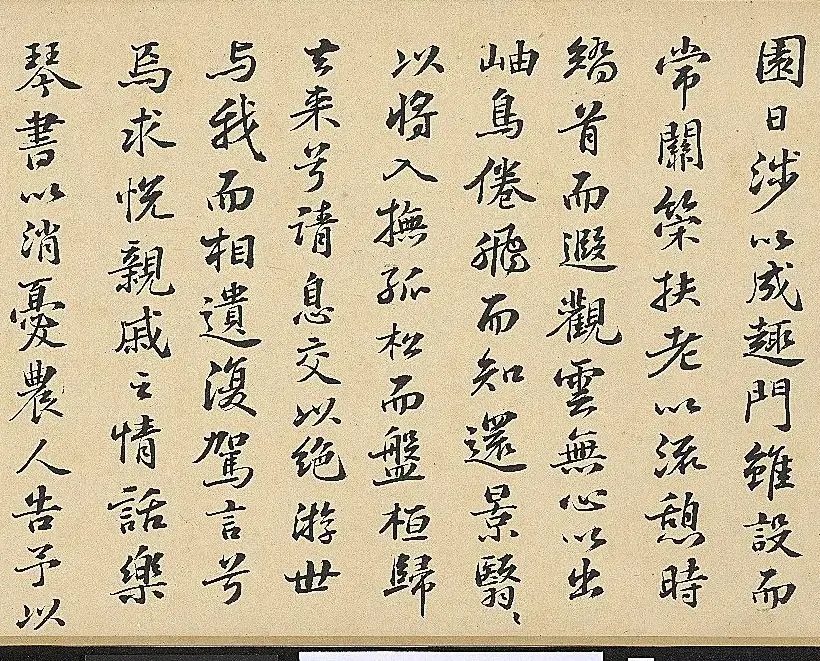 園日涉以成趣門雖設而
常關策扶老以流憩時
矯首而遐觀雲無心以出
岫鳥倦飛而知還景翳〻
以將入撫孤松而盤桓歸
去来兮請息交以絶游世
与我而相遺復駕言兮
焉求悦親戚之情話樂
琴書以消憂農人告予以